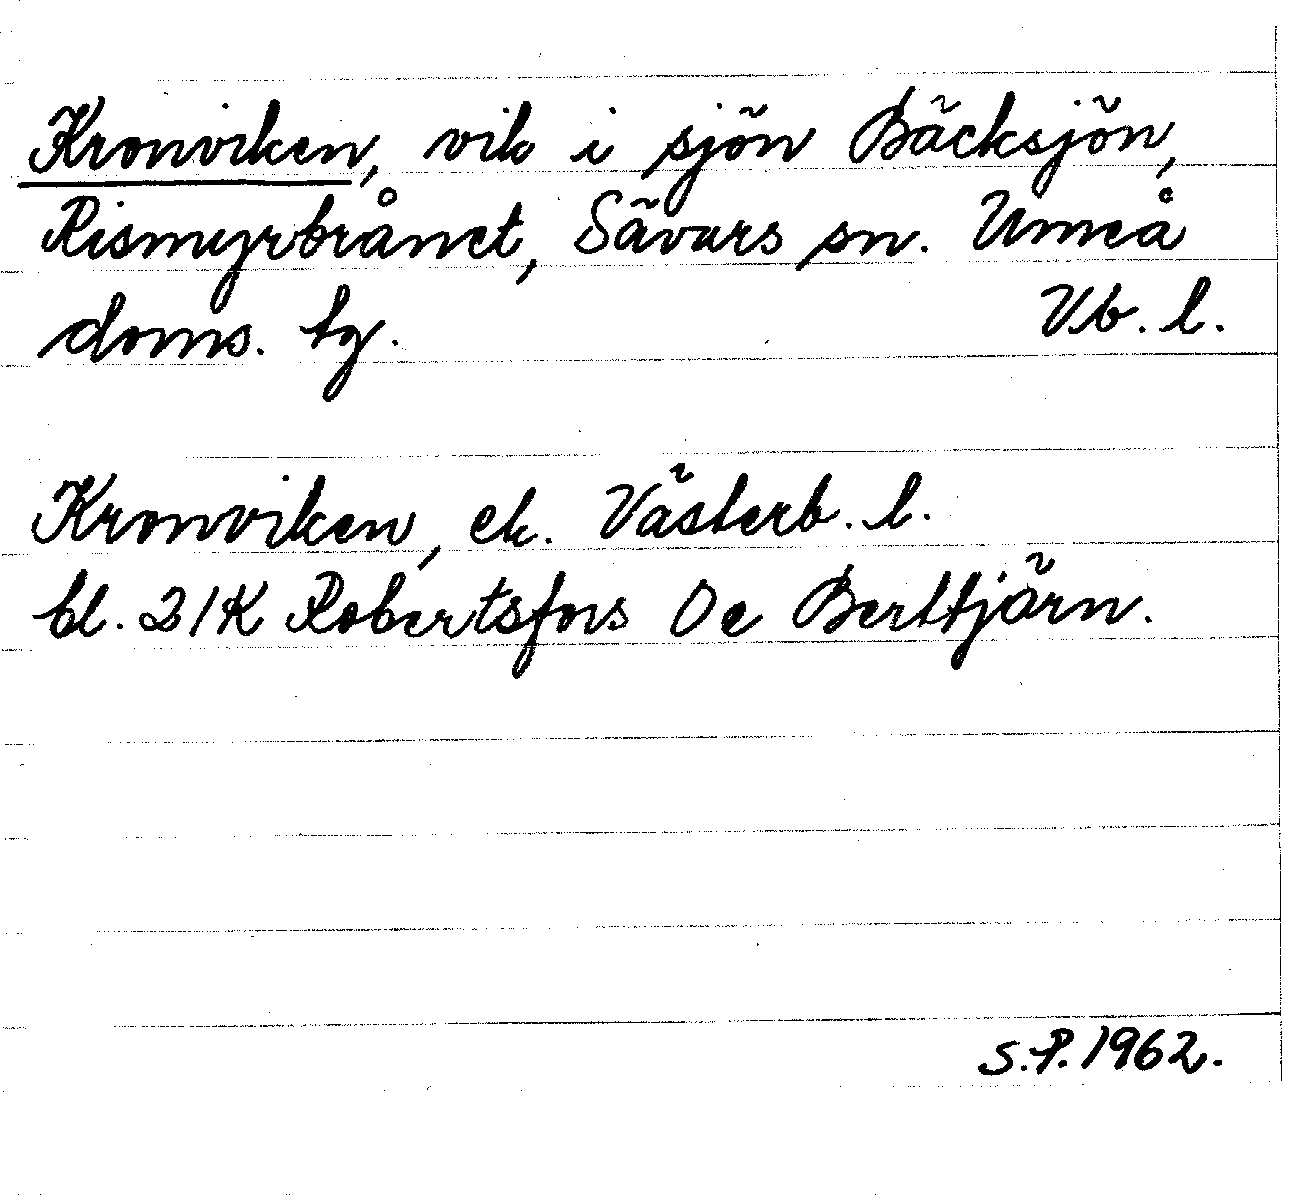 Kronviken, vik i sjön Bäcksjön,
Rismyrbrånet, Sävars sn. Umeå
doms. tg. Vb. l.
Kronviken, ek. Västerb. l.
bl. 21K Robertsfors 0e Berttjärn.
S.P. 1962.